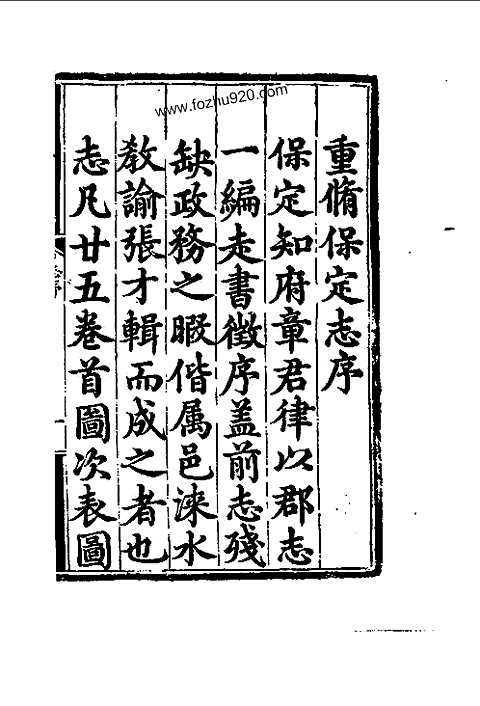 重脩保定志序
保定知府章君律以郡志
一編走書徵序盖前志殘
缺政務之暇偕属邑淶水
教諭張才輯而成之者也
志凡廿五卷首圖次表圖
www.fozhu920.com